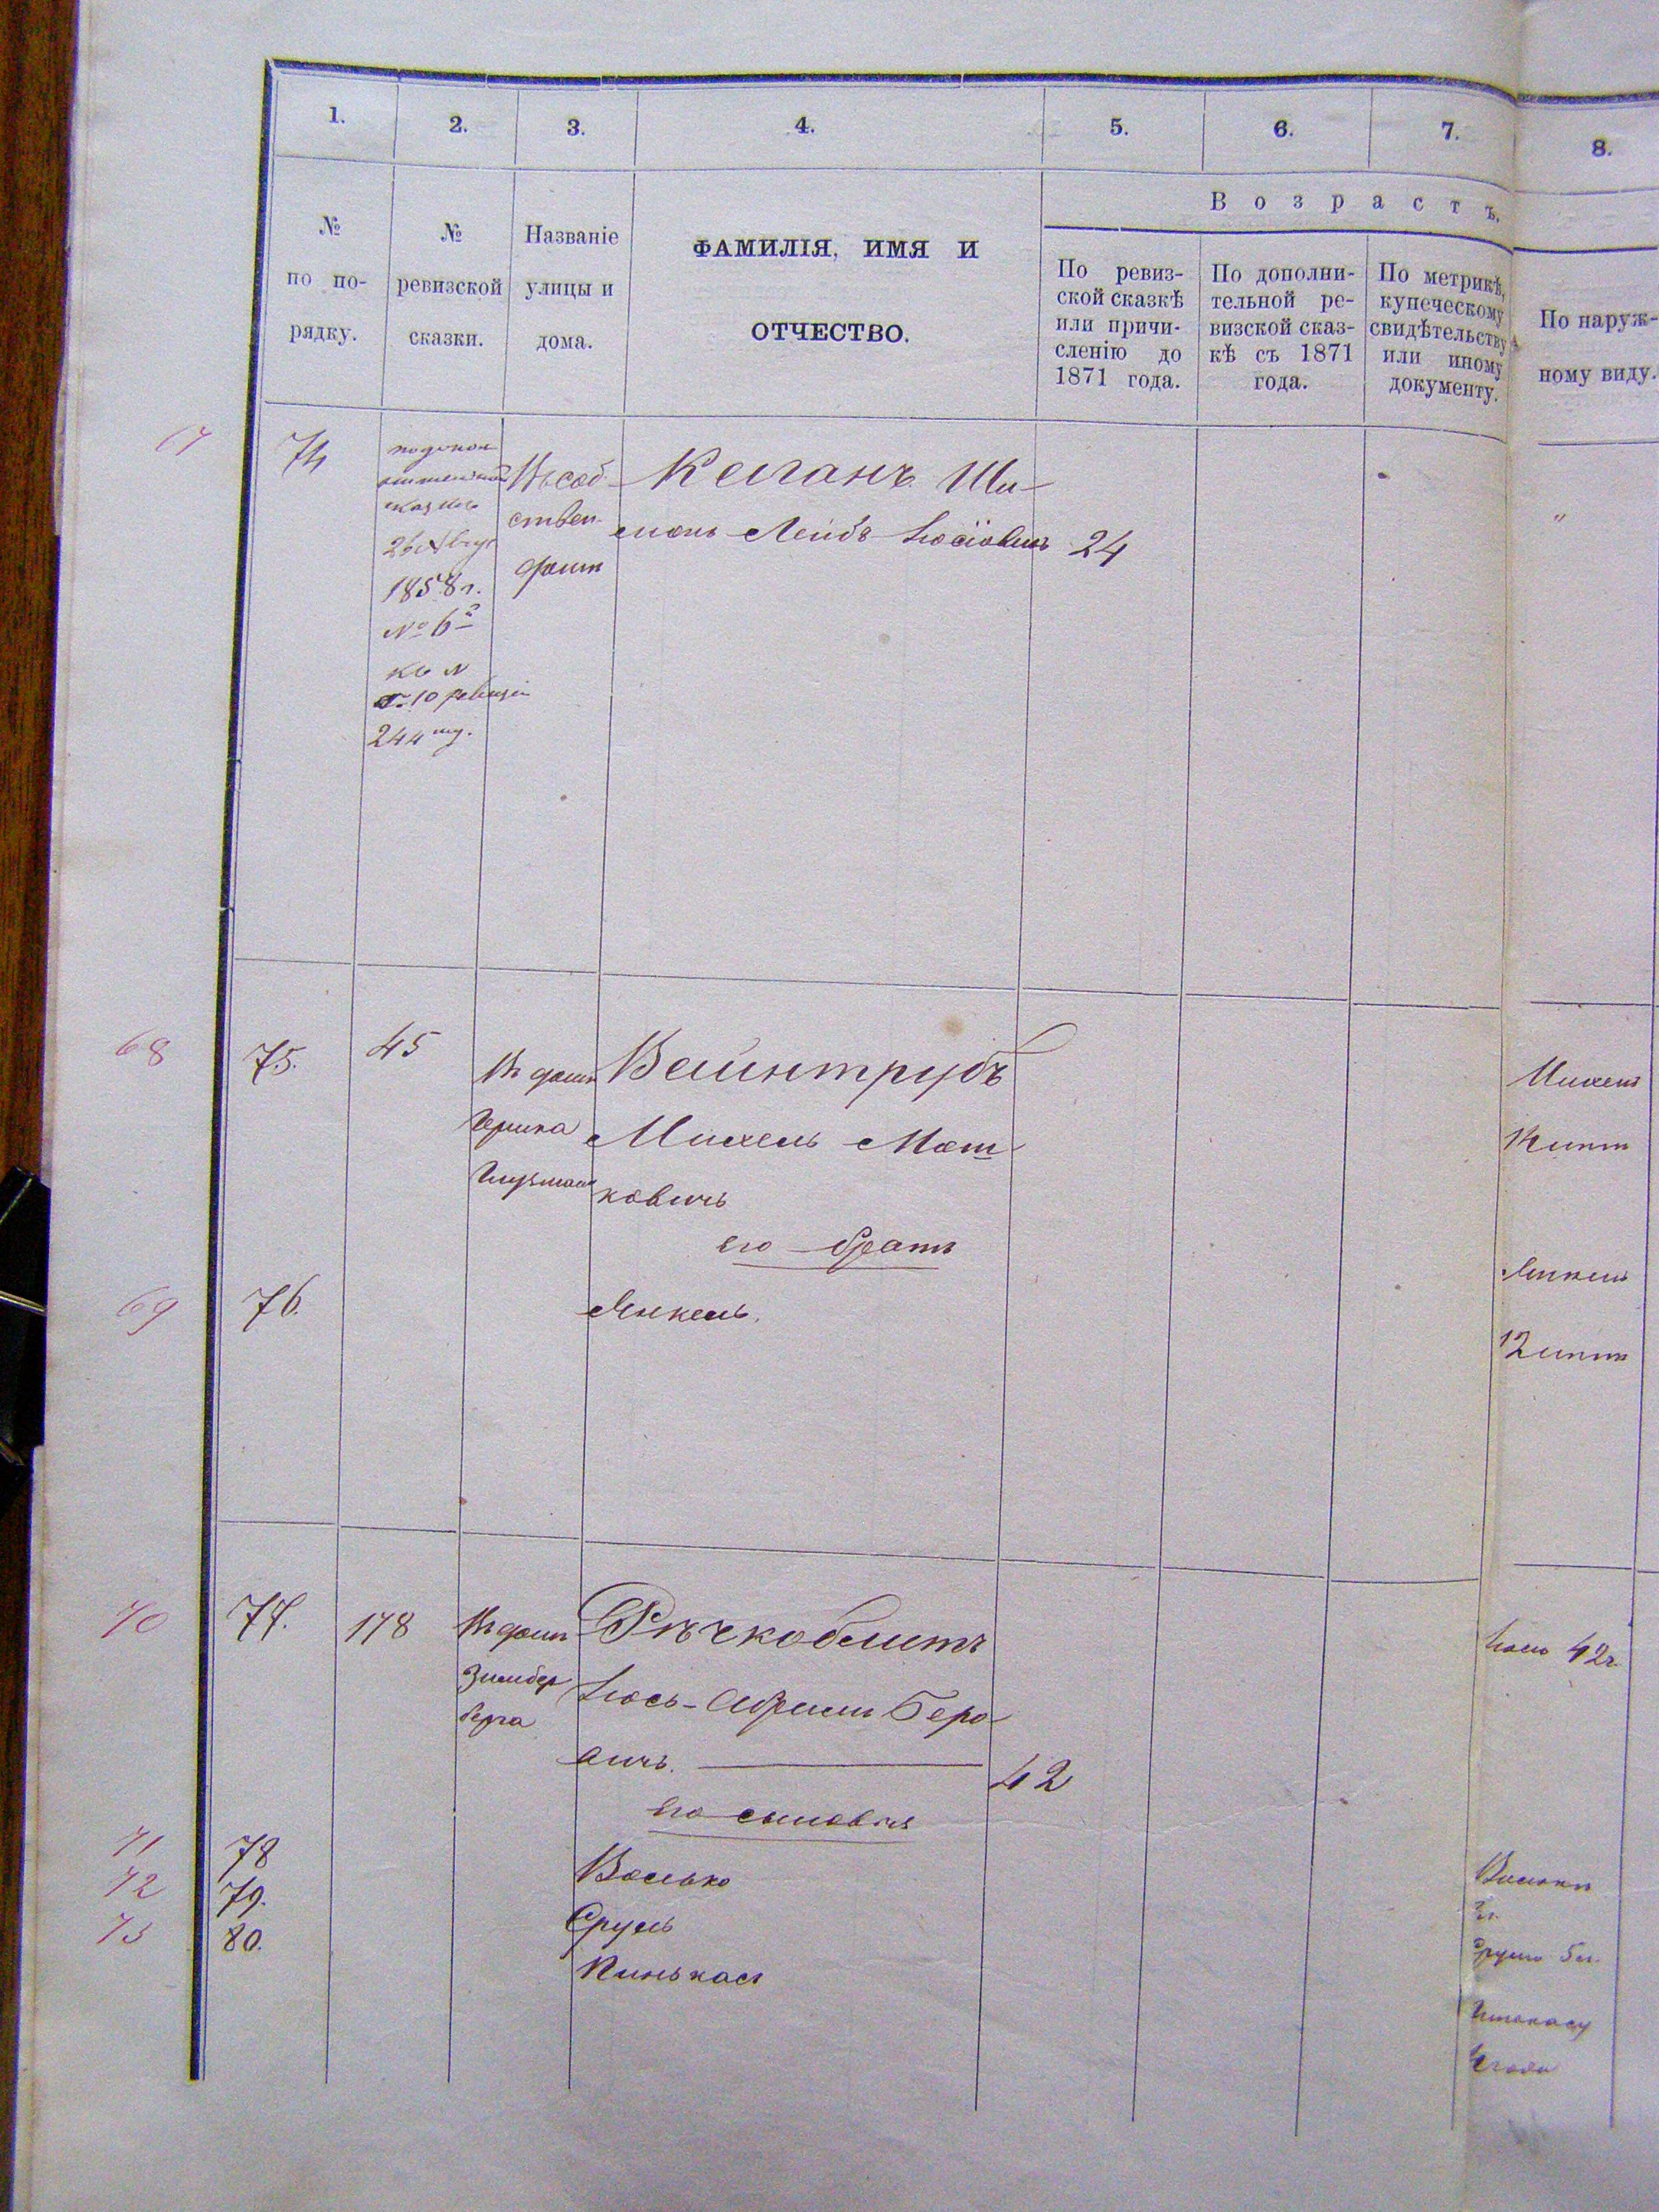 1.
2.
3.
4.
5.
6.
7.
8.
№
по по-
рядку.
№
ревизской
сказки.
Названіе
улицы и
дома.
ФАМИЛІЯ, ИМЯ И
ОТЧЕСТВО.
Возрастъ.
По ревиз-
ской сказкѣ
или причи-
сленію до
1871 года.
По дополни-
тельной ре-
визской сказ-
кѣ съ 1871
года.
По метрикѣ,
купеческому
свидѣтельству
или иному
документу.
По наруж-
ному виду.
74
сказкѣ
1858 г.
къ №
10 ревизіи
244
Въ соб-
ствен.
домѣ
Каганъ Ши-
монъ Лейбъ Іосіовичъ
24
"
68
75.
45
Въ домѣ
Вейнтрубъ
Михель Мош-
ковичъ
Михель
его братъ
69
76.
Янкель.
Янкель
12 лѣтъ
70
77.
178
Въ домѣ
Зильбер
берга
Рѣчкоблитъ
Іось-Абрамъ Беро-
вичъ.
42
Іось 42 г.
его сыновья
71
78
Волько
72
79.
Сруль
73
80.
Пинькас
5 л.